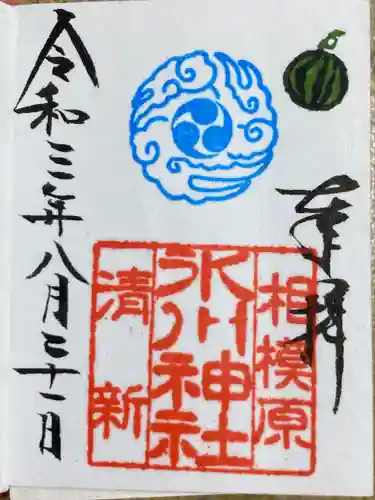 奉拝
相模原
氷川神社
清新
令和三年八月二十一日